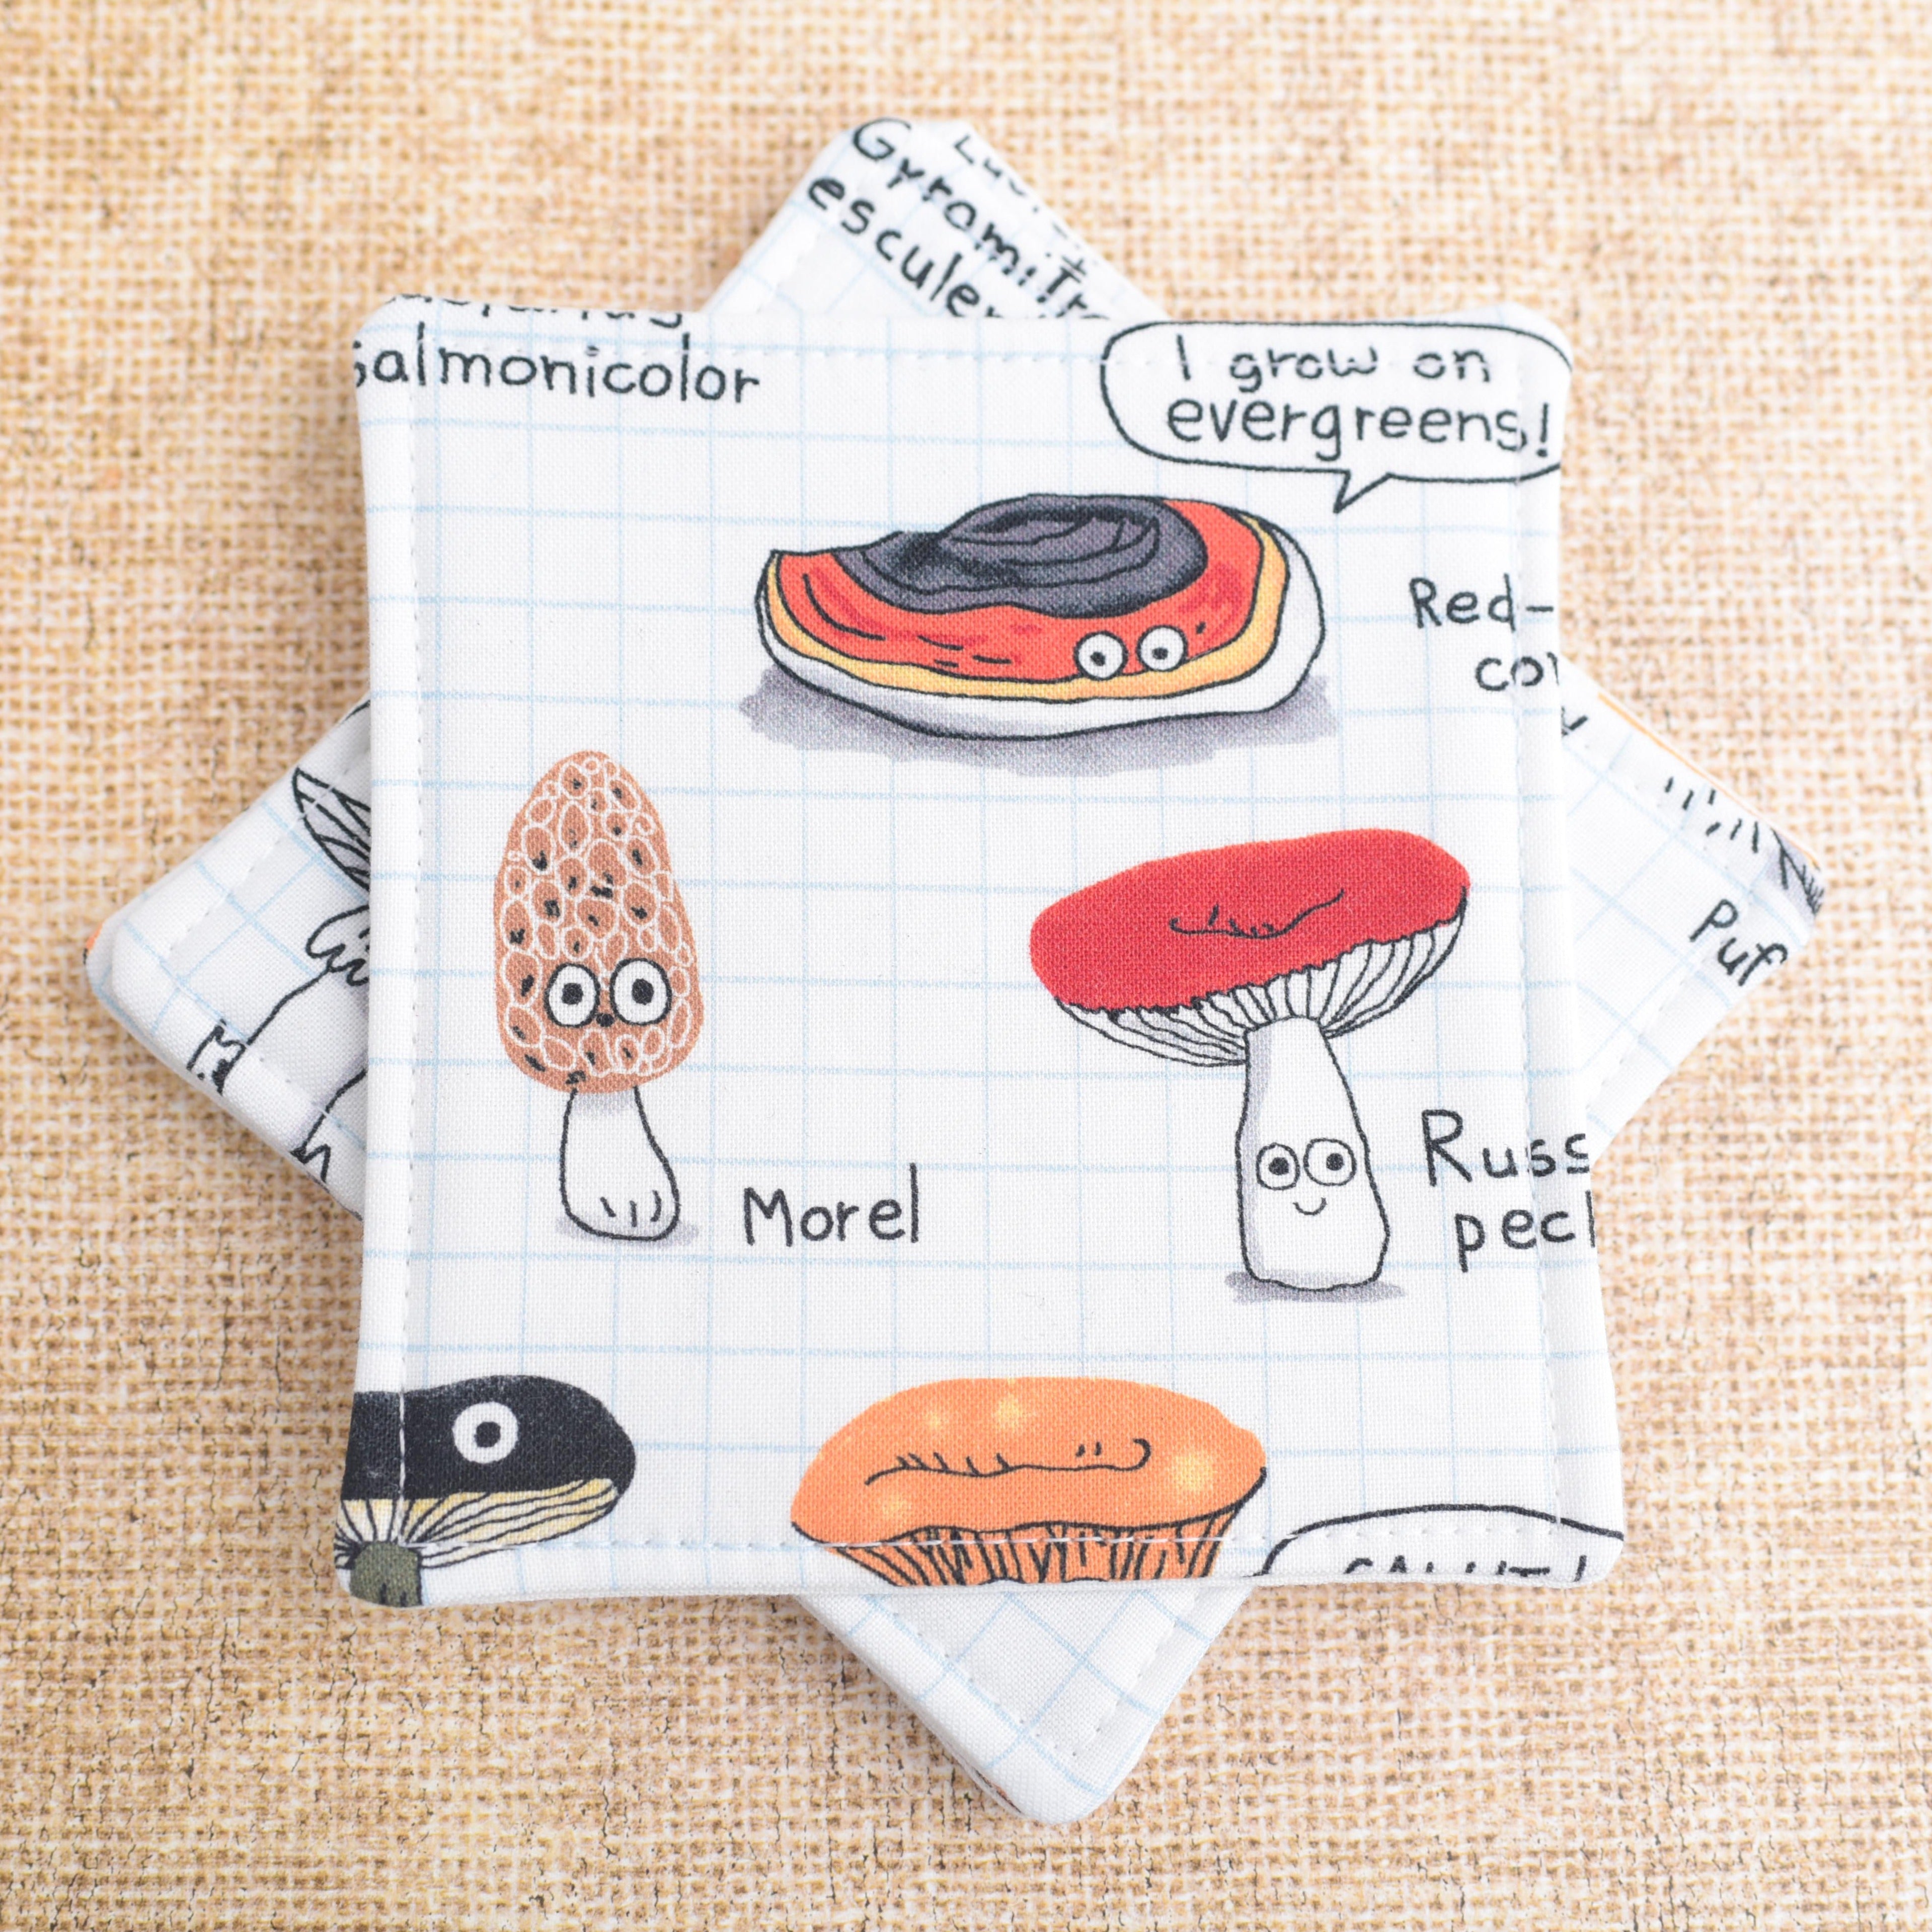 Gyromitra
esculen
salmonicolor
I grow on
evergreens!
Red-
co
Puf
Morel
Russ
pec
SALUT!